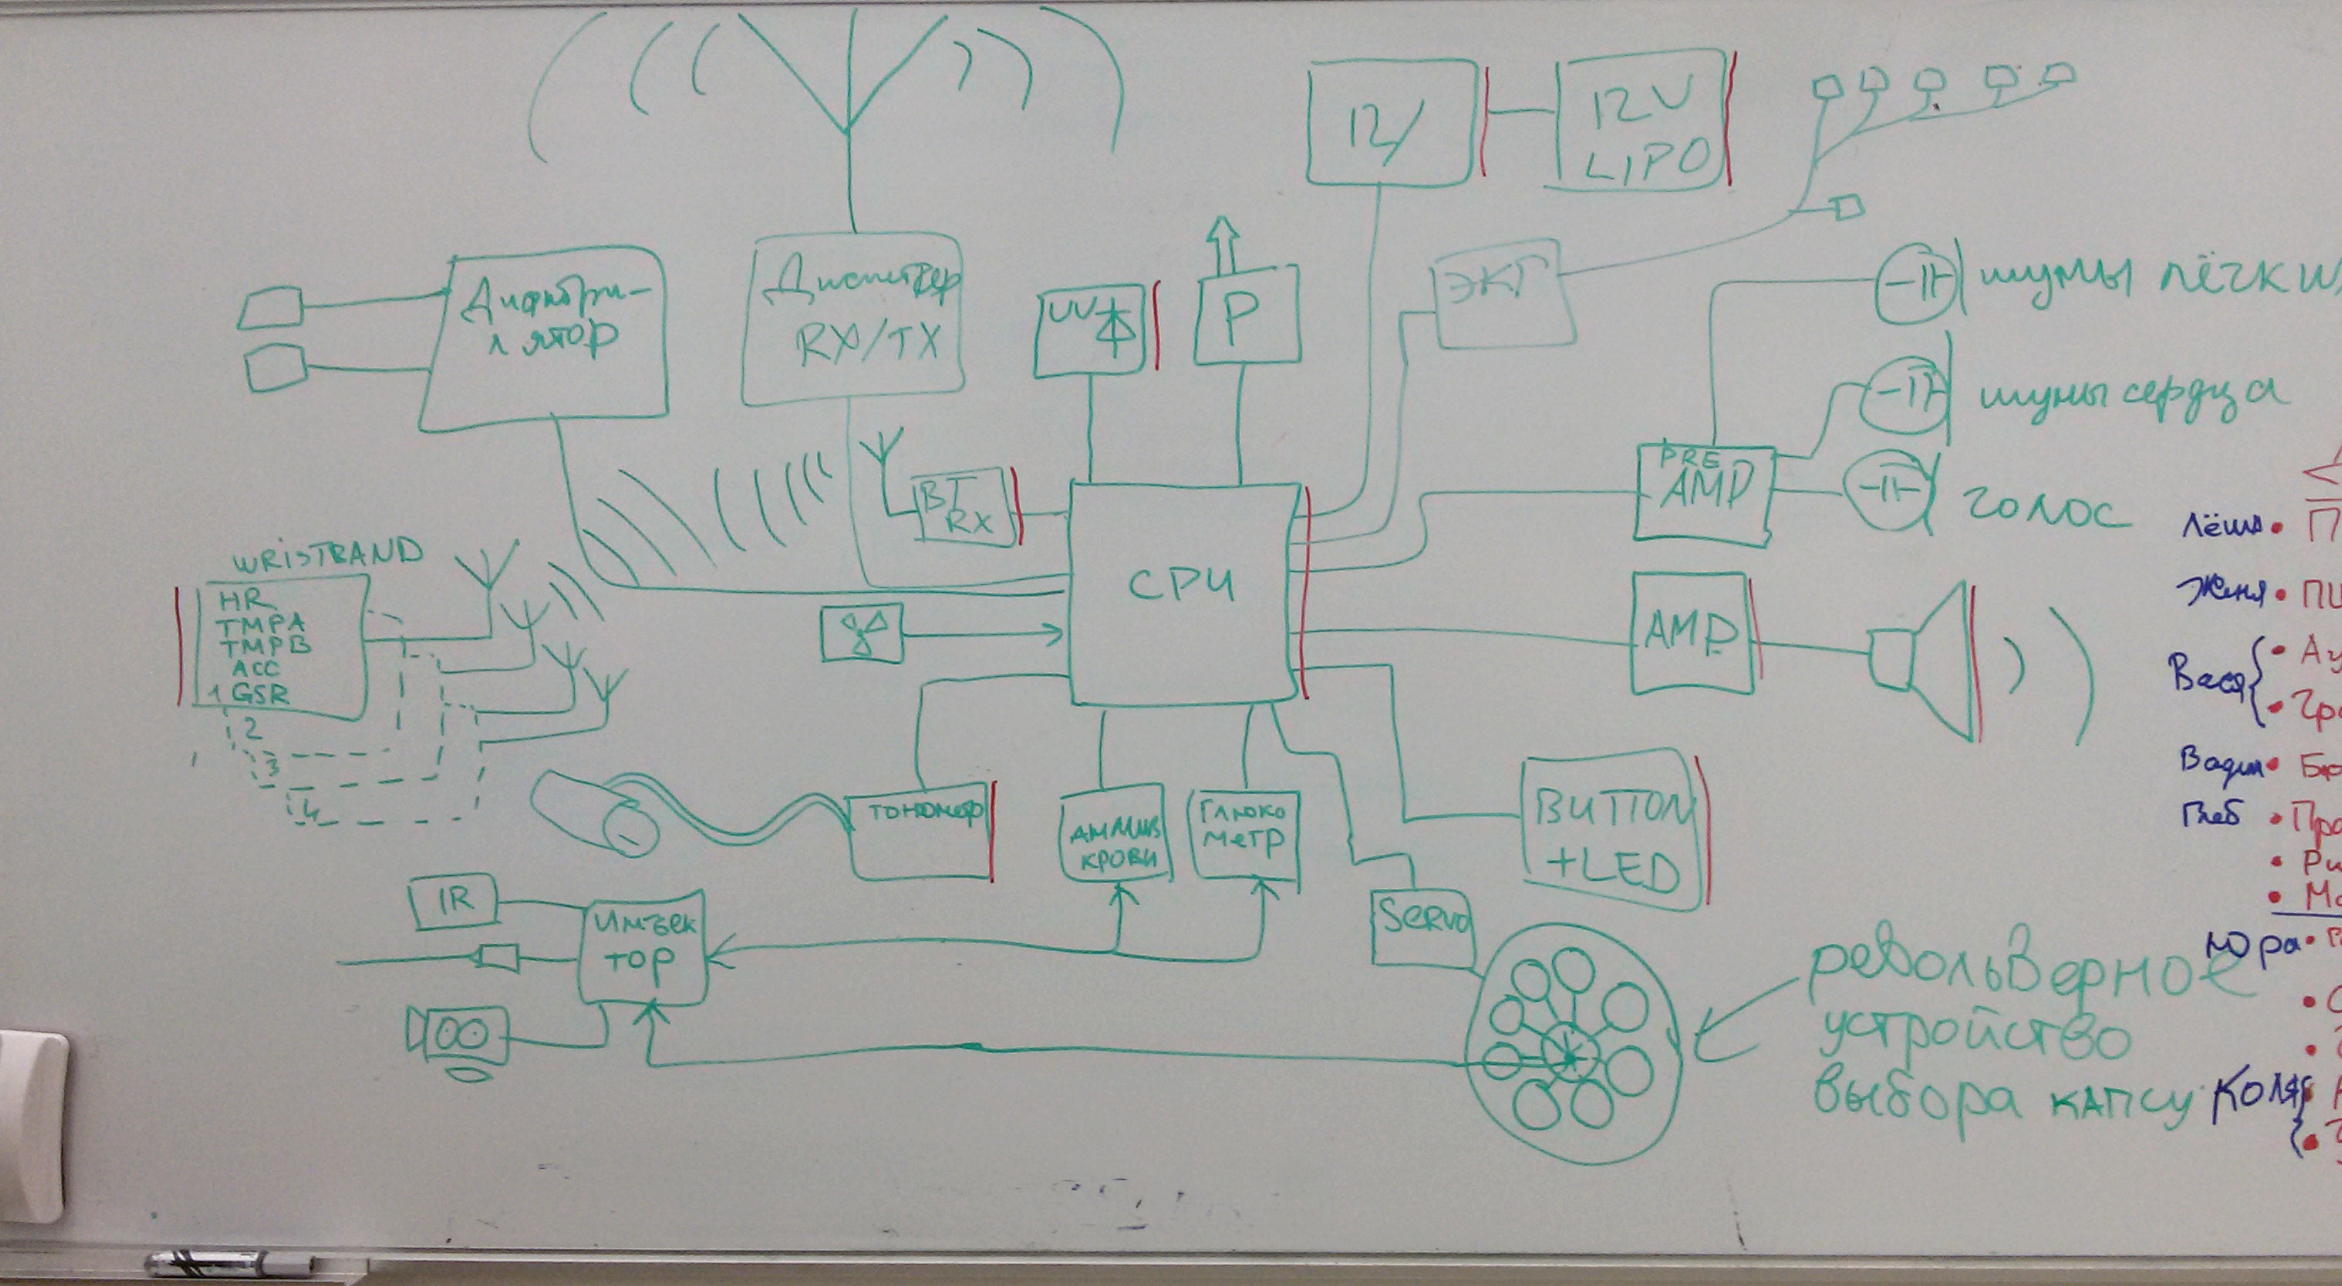 12V
12V
LIPO
Дифибри-
лятор
Диспетчер
RX/TX
UV
P
ЭКГ
шумы лёгких
шумы сердца
голос
PRE
AMP
BT
RX
CPU
WRISTBAND
HR
TMPA
TMPB
ACC
1 GSR
2
3
4
AMP
тонометр
крови
Глюко
метр
BUTTON
+LED
Servo
IR
Инъек
тор
револьверное
устройство
выбора капсу
Лёша • П
Женя • ПИ
Вася { • Ау
• Гра
Вадим •
Глеб • Про
• Ри
• Мо
Юра •
• С
Коля